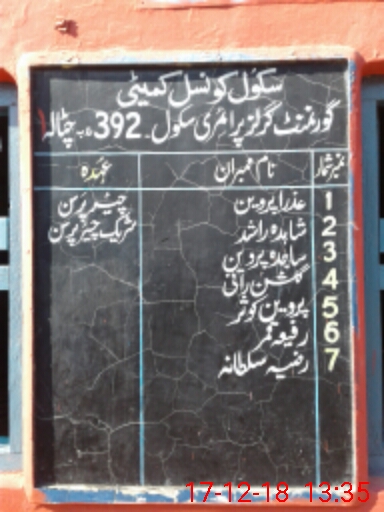 سکول کونسل کمیٹی
گورنمنٹ گرلز پرائمری سکول۔ 392
نمبر شمار نام ممبران عہدہ
1 عذرا پروین چیئر پرسن
2 شاہدہ راشد شریک چیئر پرسن
3 ساجدہ پروین
4 گلشن رانی
5 پروین کوثر
6 رفیعہ قمر
7 رضیہ سلطانہ
17-12-18 13:35